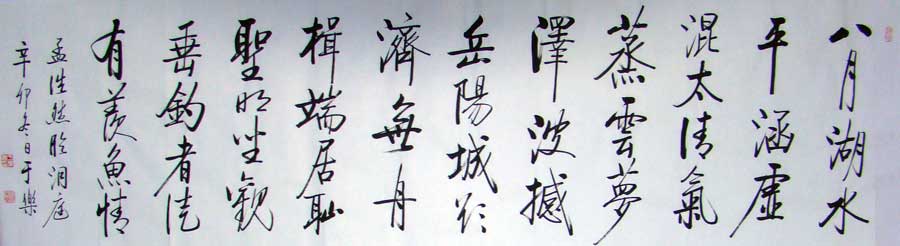 八月湖水
平涵虛
混太清氣
蒸雲夢
澤波撼
岳陽城欲
濟無舟
楫端居耻
聖明坐觀
垂釣者徒
有羨魚情
孟浩然临洞庭
辛卯冬日于樂